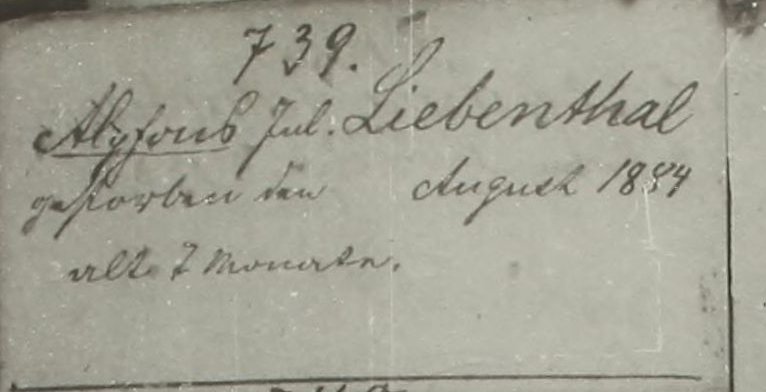 739.
Alyfons Jul. Liebenthal
gestorben den August 1884
alt 7 Monate.